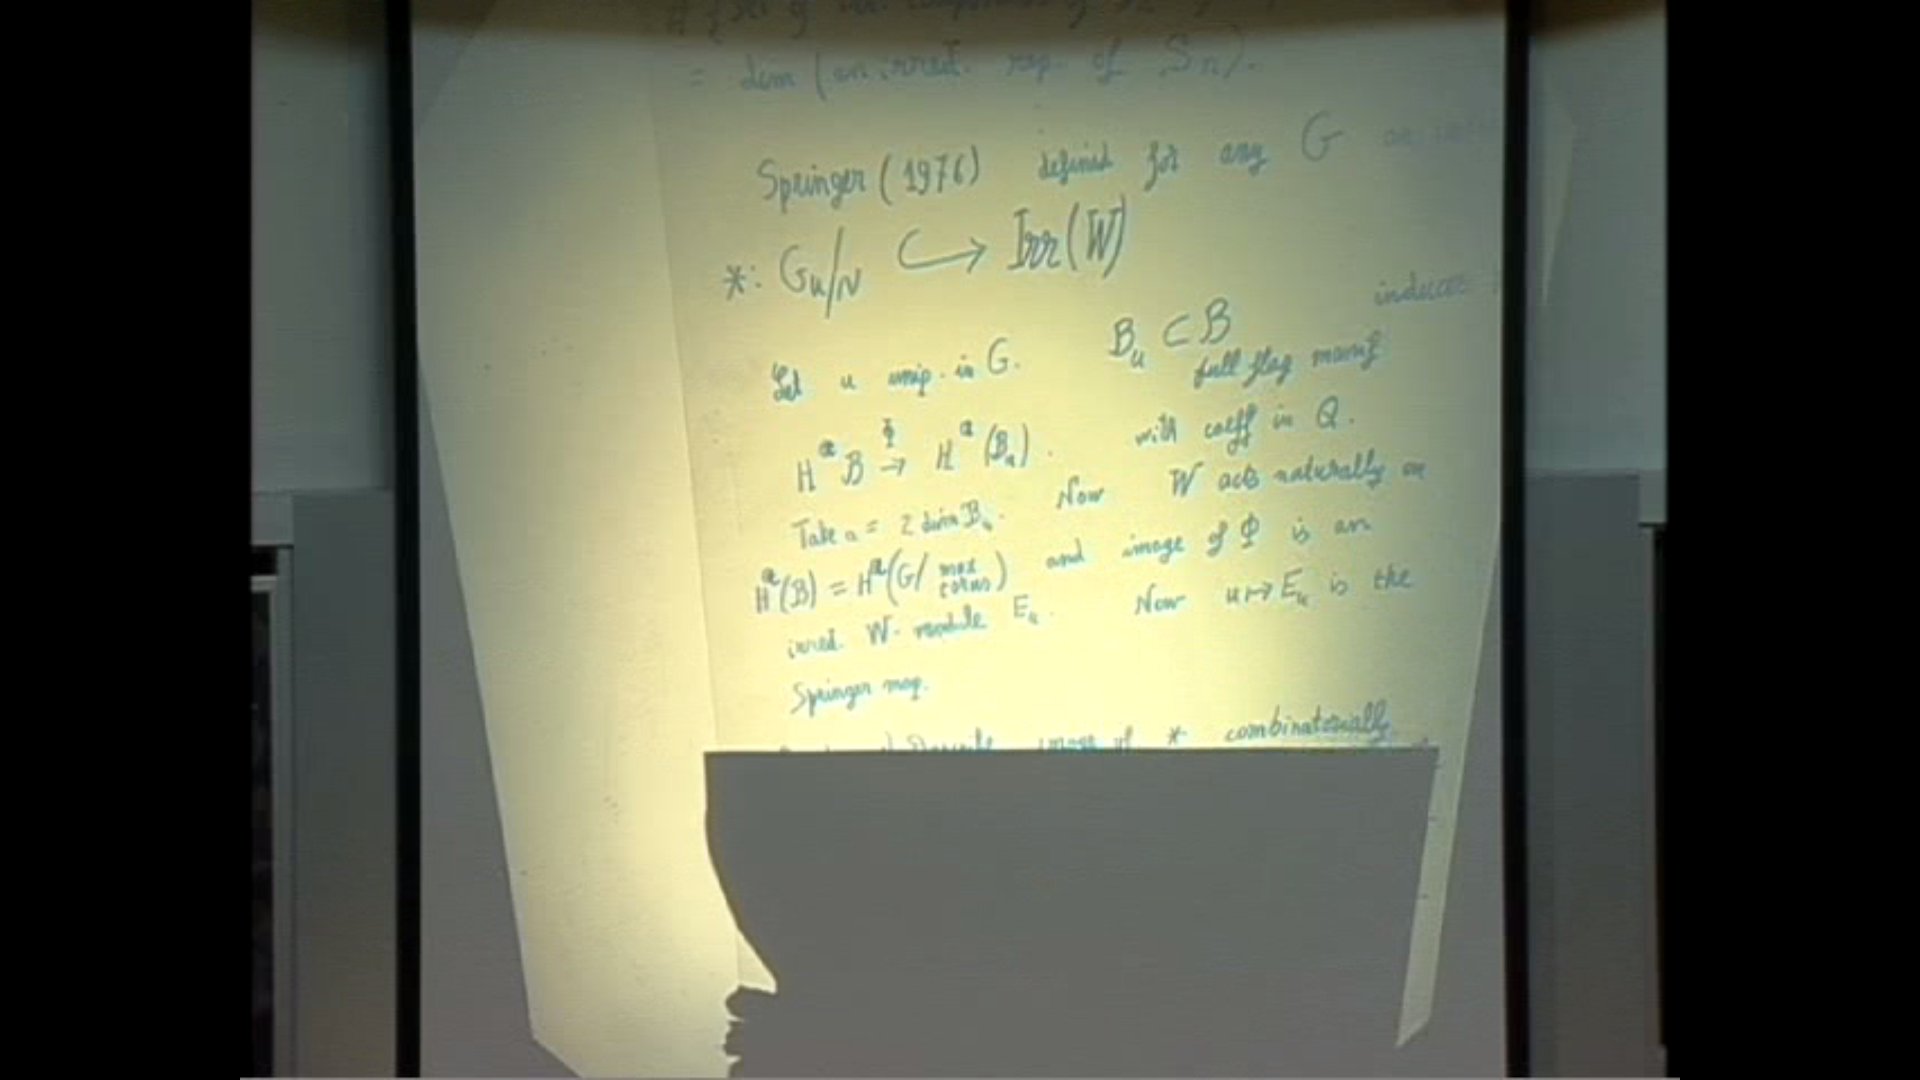 = dim (an irred. rep. of Sn).
Springer (1976) defined for any G
*: Gu/~ ↪ Irr(W)
induces
Let u unip. in G. B_u ⊂ B
full flag manif
H^a B →^Φ H^a (B_u). with coeff in Q.
Take a = 2 dim B_u. Now W acts naturally on
H^a(B) = H^a(G/ max torus) and image of Φ is an
irred. W-module E_u. Now u ↦ E_u is the
Springer map.
image of * combinatorially